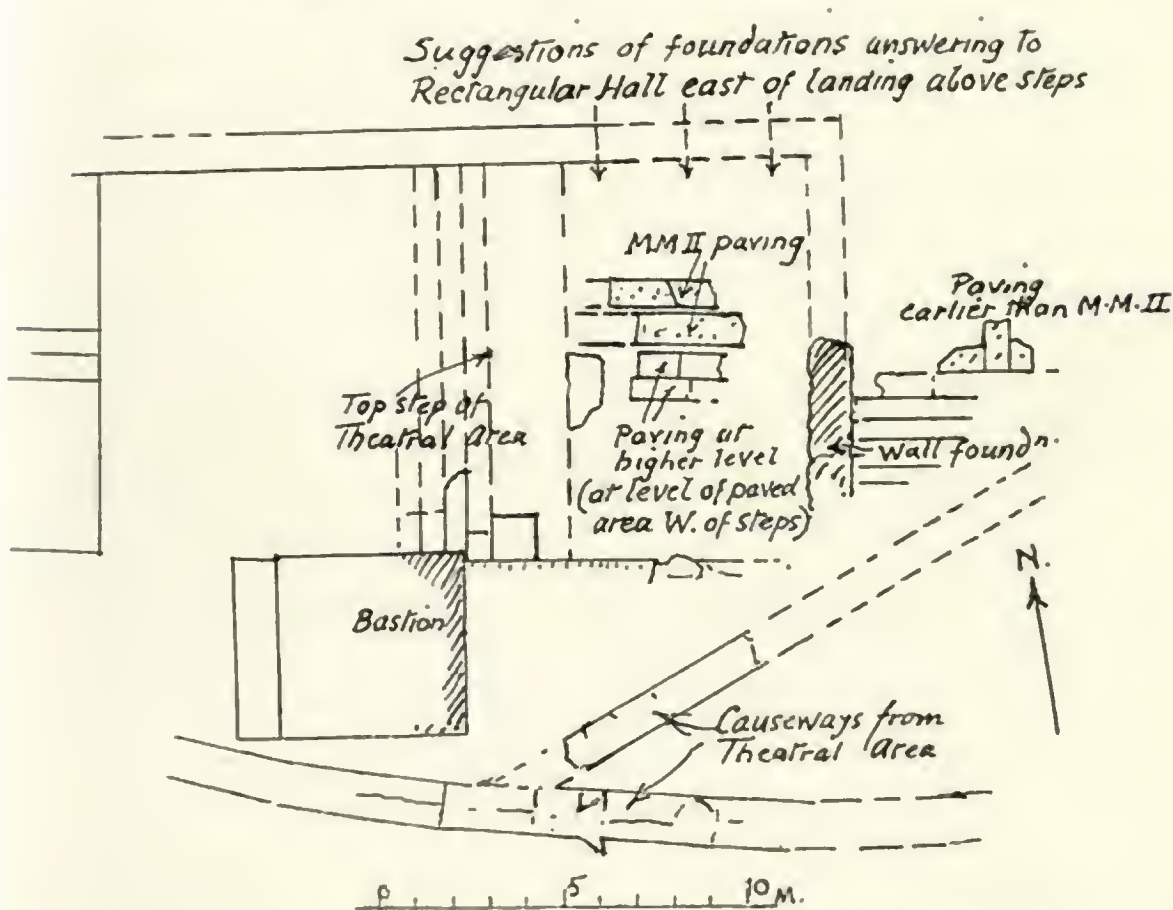 Suggestions of foundations answering to
Rectangular Hall east of landing above steps
MM II paving
Paving
earlier than M.M.II
Top step of
Theatral Area
Paving at
higher level
(at level of paved
area W. of steps)
Wall foundn.
N.
Bastion
Causeways from
Theatral Area
0 5 10 M.